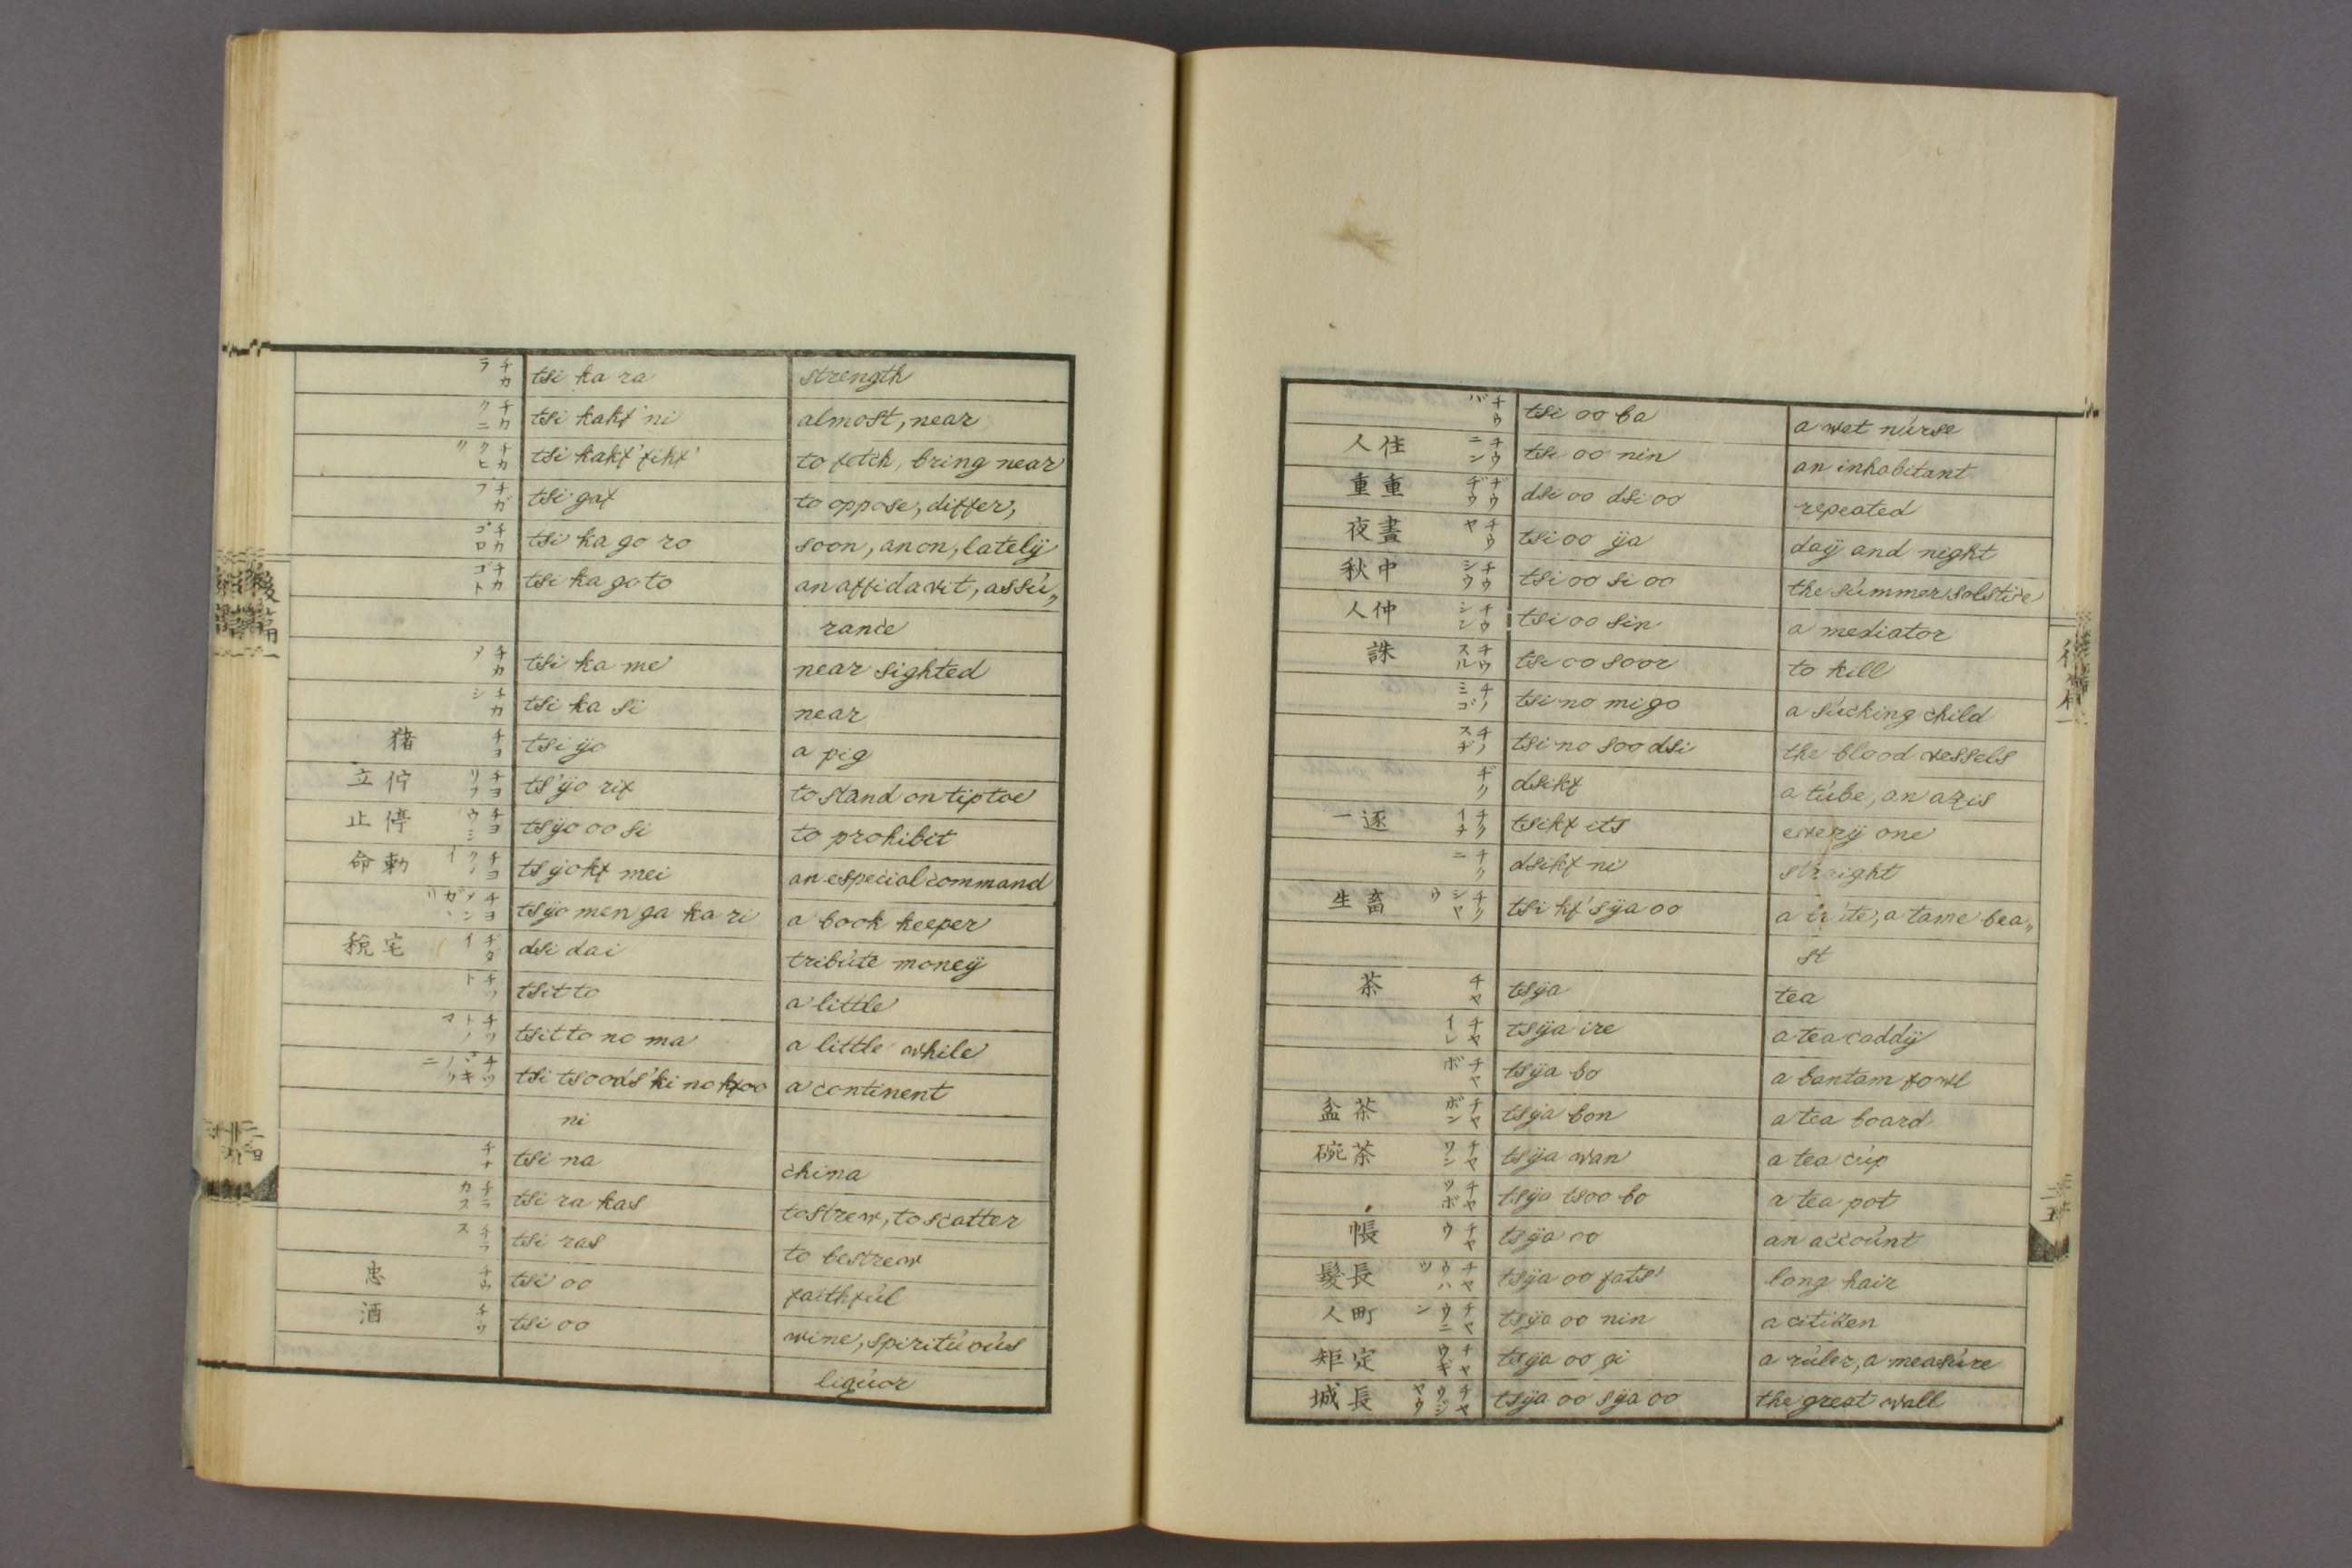 チカラ tsi ka ra strength
チカクニ tsi kakf' ni almost, near
チカクヒク tsi kakf' fikf' to fetch, bring near
チガフ tsi gaf to oppose, differ,
チカゴロ tsi ka go ro soon, anon, latelÿ
チカゴト tsi ka go to an affidavit, assú„
rance
チカメ tsi ka me near sighted
チカシ tsi ka si near
猪 チヨ tsi ÿo a pig
立佇 チヨリフ ts'ÿo rif to stand on tiptoe
止停 チヨウシ tsÿo oo si to prohibit
命勅 tsÿokf mei an especial command
tsÿo men ga ka ri a book keeper
税宅 ヂダイ dsi dai tribúte moneÿ
チツト tsit to a little
チツトノマ tsit to no ma a little while
tsi tsoo's'ki no kfoo a continent
ni
チナ tsi na china
チラカス tsi ra kas to strew, to scatter
チラス tsi ras to bestrew
忠 チウ tsi oo faithfúl
酒 チウ tsi oo wine, spiritúoús
liqúor
チウバ tsi oo ba a wet núrse
人住 チウニン tsi oo nin an inhabitant
重重 ヂウヂウ dsi oo dsi oo repeated
夜晝 チウヤ tsi oo ÿa daÿ and night
秋中 チウシウ tsi oo si oo the súmmer solstice
人仲 チウシン tsi oo sin a mediator
誅 チウスル tsi oo soor to kill
チノミゴ tsi no mi go a súcking child
チノスヂ tsi no soo dsi the blood vessels
ヂク dsikf a túbe, an axis
一逐 チクイチ tsikf its everÿ one
チクニ dsikf ni straight
生畜 チクシヤウ tsi kf' sÿa oo a brúte, a tame bea„
st
茶 チヤ tsÿa tea
チヤイレ tsÿa ire a tea caddÿ
チヤボ tsÿa bo a bantam fowl
盆茶 チヤボン tsÿa bon a tea board
碗茶 チヤワン tsÿa wan a tea cúp
チヤツボ tsÿa tsoo bo a tea pot
帳 チヤウ tsÿa oo an accoúnt
髮長 チヤウハツ tsÿa oo fats' long hair
人町 チヤウニン tsÿa oo nin a citizen
矩定 チヤウギ tsÿa oo gi a rúler, a measúre
城長 チヤウジヤウ tsÿa oo sÿa oo the great wall